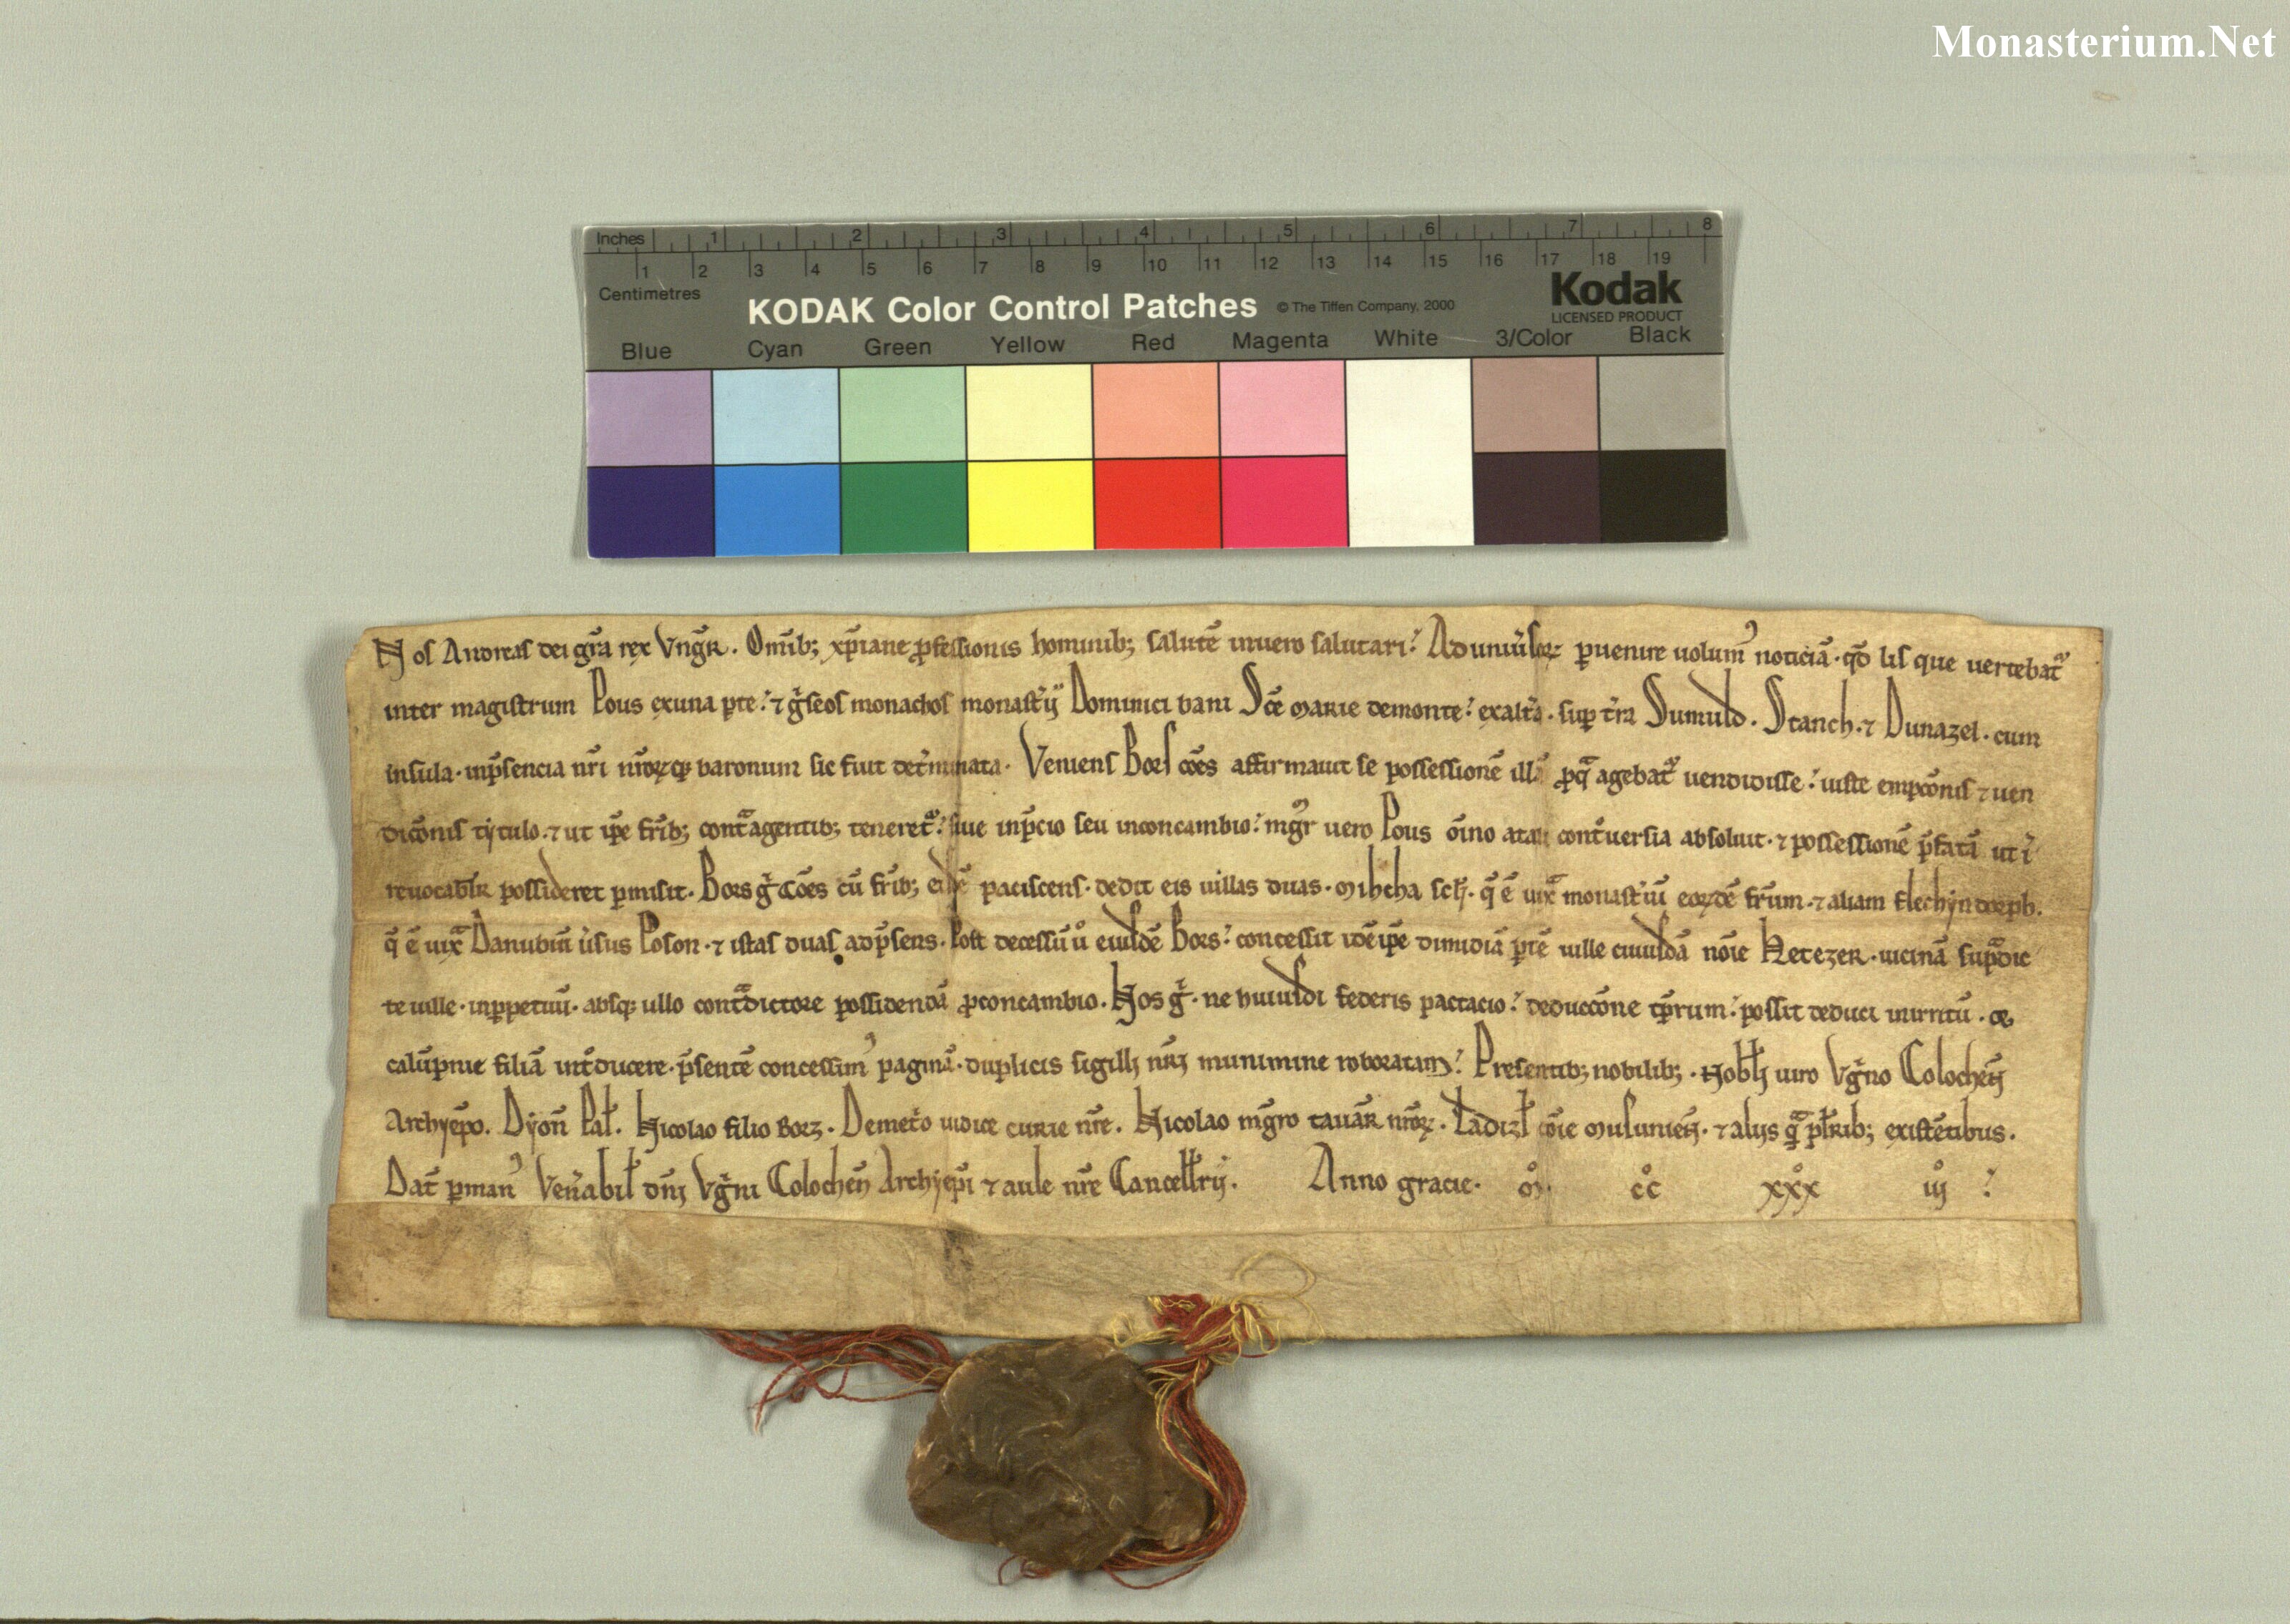 Monasterium.Net
Inches 1 2 3 4 5 6 7 8
1 2 3 4 5 6 7 8 9 10 11 12 13 14 15 16 17 18 19
Centimetres
KODAK Color Control Patches © The Tiffen Company, 2000 Kodak
LICENSED PRODUCT
Blue Cyan Green Yellow Red Magenta White 3/Color Black
Nos Andreas dei gr̄a rex Vngr̄. Om̄ib; xp̄iane ꝓfessionis hominib; salutē in uero salutari. Ad uniu̾soꝝ ꝑuenire uolum᾽ noticiā. qđ lis que uertebat᾽
inter magistrum Pous ex una ꝑte. ⁊ g̾seos monachos monast̾ij Dominici bani Sc̄e Marie de monte. ex alt̾a. suꝑ t̾ra Sumuld. Stanch. ⁊ Dunazel. cum
insula. in p̄sencia nr̄i nr̄oꝝq; baronum sic fuit det̾minata. Veniens Bors com̄es affirmauit se possessionē illā ꝓ qᵃ agebat᾽ uendidisse. iuste empc̄onis ⁊ uen
dic̄onis tytulo. ⁊ ut ip̄e fr̄ib; contᵃ agentib; teneret᾽. siue in p̄cio seu in concambio. mgr̄ uero Pous om̄ino a tali cont̾uersia absoluit. ⁊ possessionē p̄fatā ut i̾
reuocabilr̄ possideret ꝑmisit. Bors g̾ com̄es cū fr̄ib; eisdē paciscens. dedit eis uillas duas. Mihcha scɫ. q̄ ē iuxᵃ monast̾iū eoꝝdē fr̄um. ⁊ aliam flechyndorph.
q̄ ē iuxᵃ Danubiū u̾sus Poson. ⁊ istas duas ad p̄sens. Post decessū u̾ eiusdē Bors. concessit idē ip̄e dimidiā ꝑtē uille cuiusdā no̅ie Hetezer. uicinā supᵃdic
te uille. in ꝑpetuū. absq; ullo contᵃdictore possidendā ꝓ concambio. Nos g̾. ne huiusdi federis pactacio. deducc̄one tp̄rum. possit deduci in irritū.
calūpnie filiā int̾ducere. p̄sentē concessim᾽ paginā. duplicis sigilli nr̄i munimine roboratam. Presentib; nobilib;. Nobɫi uiro Vg̾no Colochen̄
Archyep̄o. Dyon̄ Paɫ. Nicolao filio Borz. Demet̾o iudice curie nr̄e. Nicolao mgr̄o tauar̄ nr̄oꝝ. Ladizɫ com̄ite Musunien̄. ⁊ alijs q̄ᵃ pɫrib; existētibus.
Dat̄ ꝑ man᾽ Ven̾abiɫ dn̄i Vg̾ni Colochen̄ Archyep̄i ⁊ aule nr̄e Cancellrij. Anno gracie. M. CC XXX iij